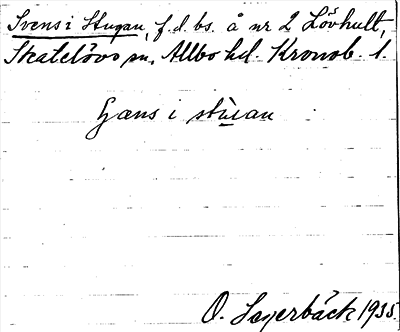 Svens i Stugan, f.d. bs. å nr 2 Lövhult,
Skatelövs sn, Allbo hd. Kronob. l.
i stùan
O. Lagerbäck 1935.